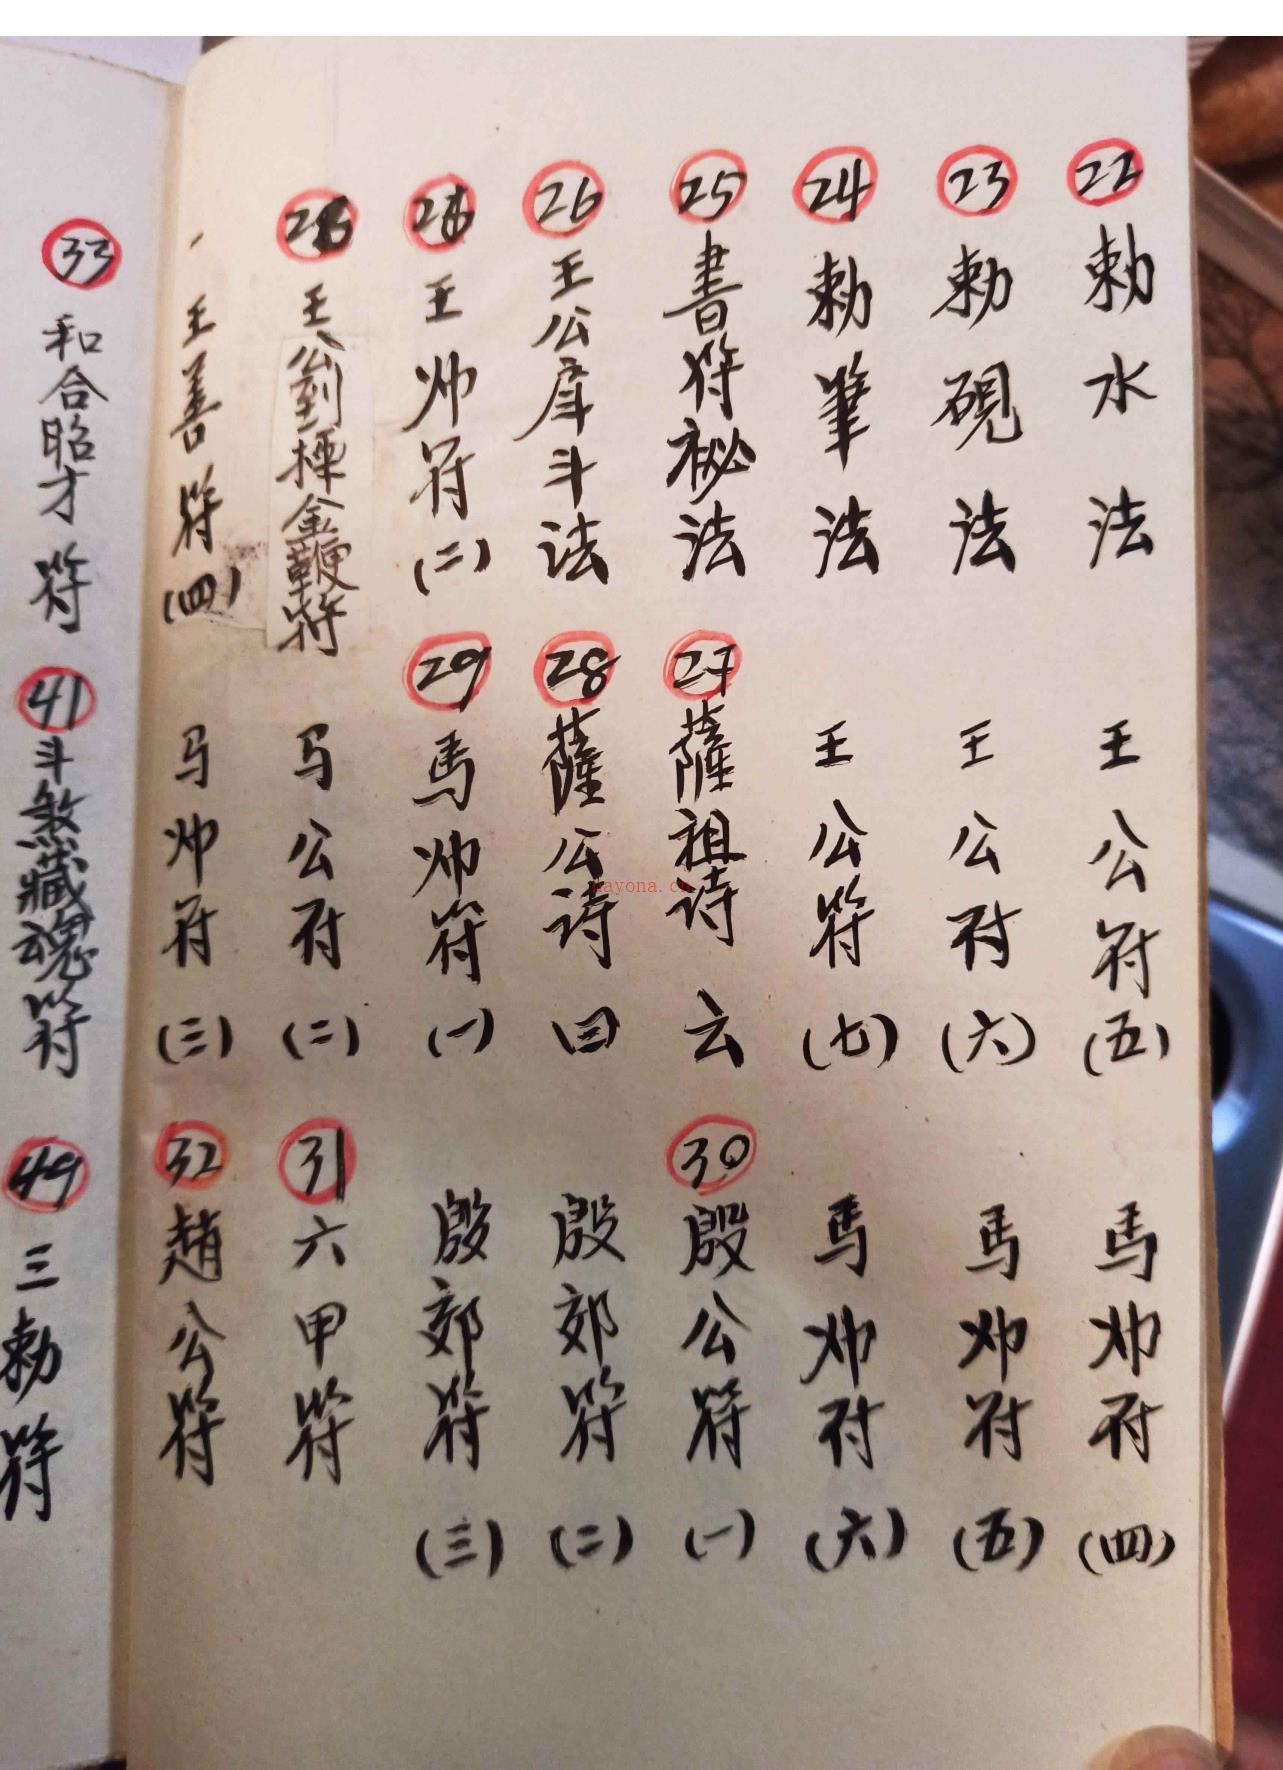 22 勅水法
23 勅硯法
24 勅筆法
25 書符祕法
26 王公罡斗法
王帅符(二)
王公剑揮金鞭符
王善符(四)
王公符(五)
王公符(六)
王公符(七)
27 薩祖诗云
28 薩公诗曰
29 馬帅符(一)
马公符(二)
马帅符(三)
馬帅符(四)
馬帅符(五)
馬帅符(六)
30 殷公符(一)
殷郊符(二)
殷郊符(三)
31 六甲符
32 趙公符
33 和合昭才符
41 斗煞藏魂符
49 三勅符
nayona.cn